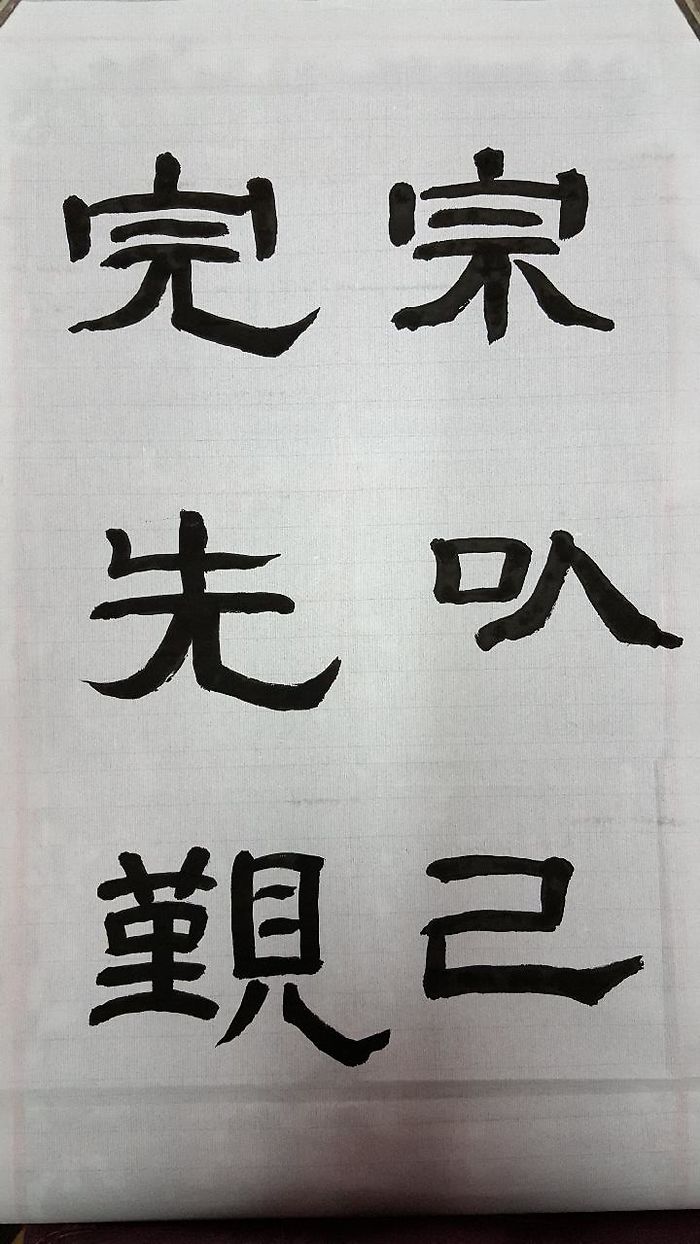 宗以己
完先覲